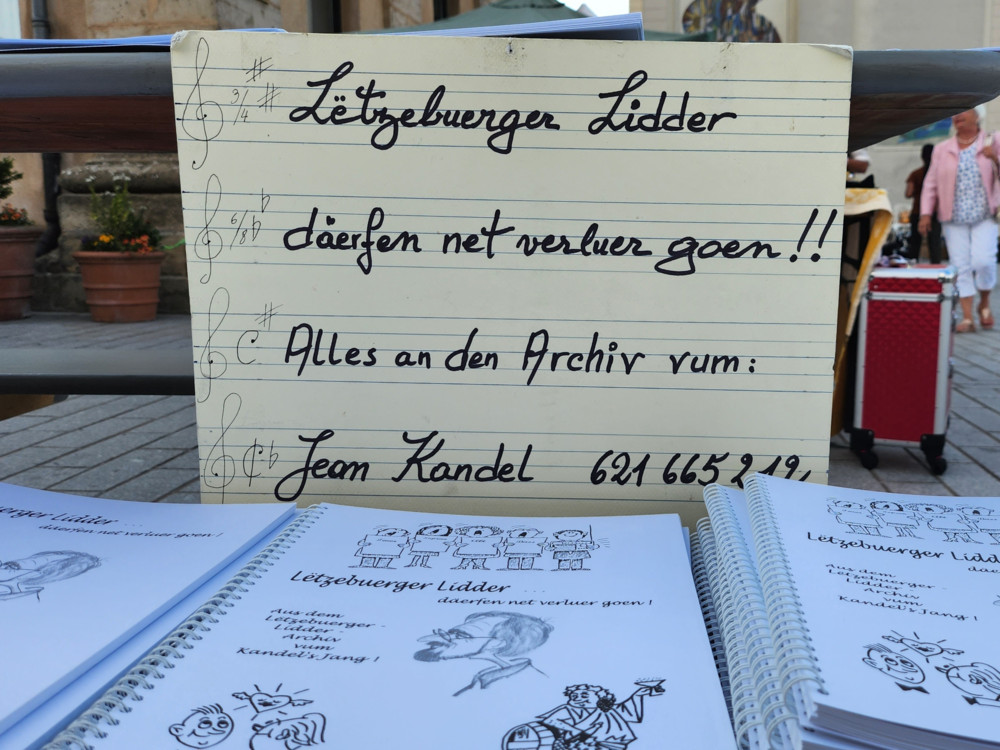 3/4
Lëtzebuerger Lidder
6/8
däerfen net verluer goen!!
C
Alles an den Archiv vum:
Jean Kandel 621 665 212
Lidder ...
däerfen net verluer goen!
Lëtzebuerger Lidder ...
daerfen net verluer goen!
Aus dem
Lëtzebuerger-
Lidder-
Archiv
vum
Kandel's Jang!
Lëtzebuerger
Aus dem
Lëtzebuerger-
Lidder-
Archiv
vum
Kandel's Jang!